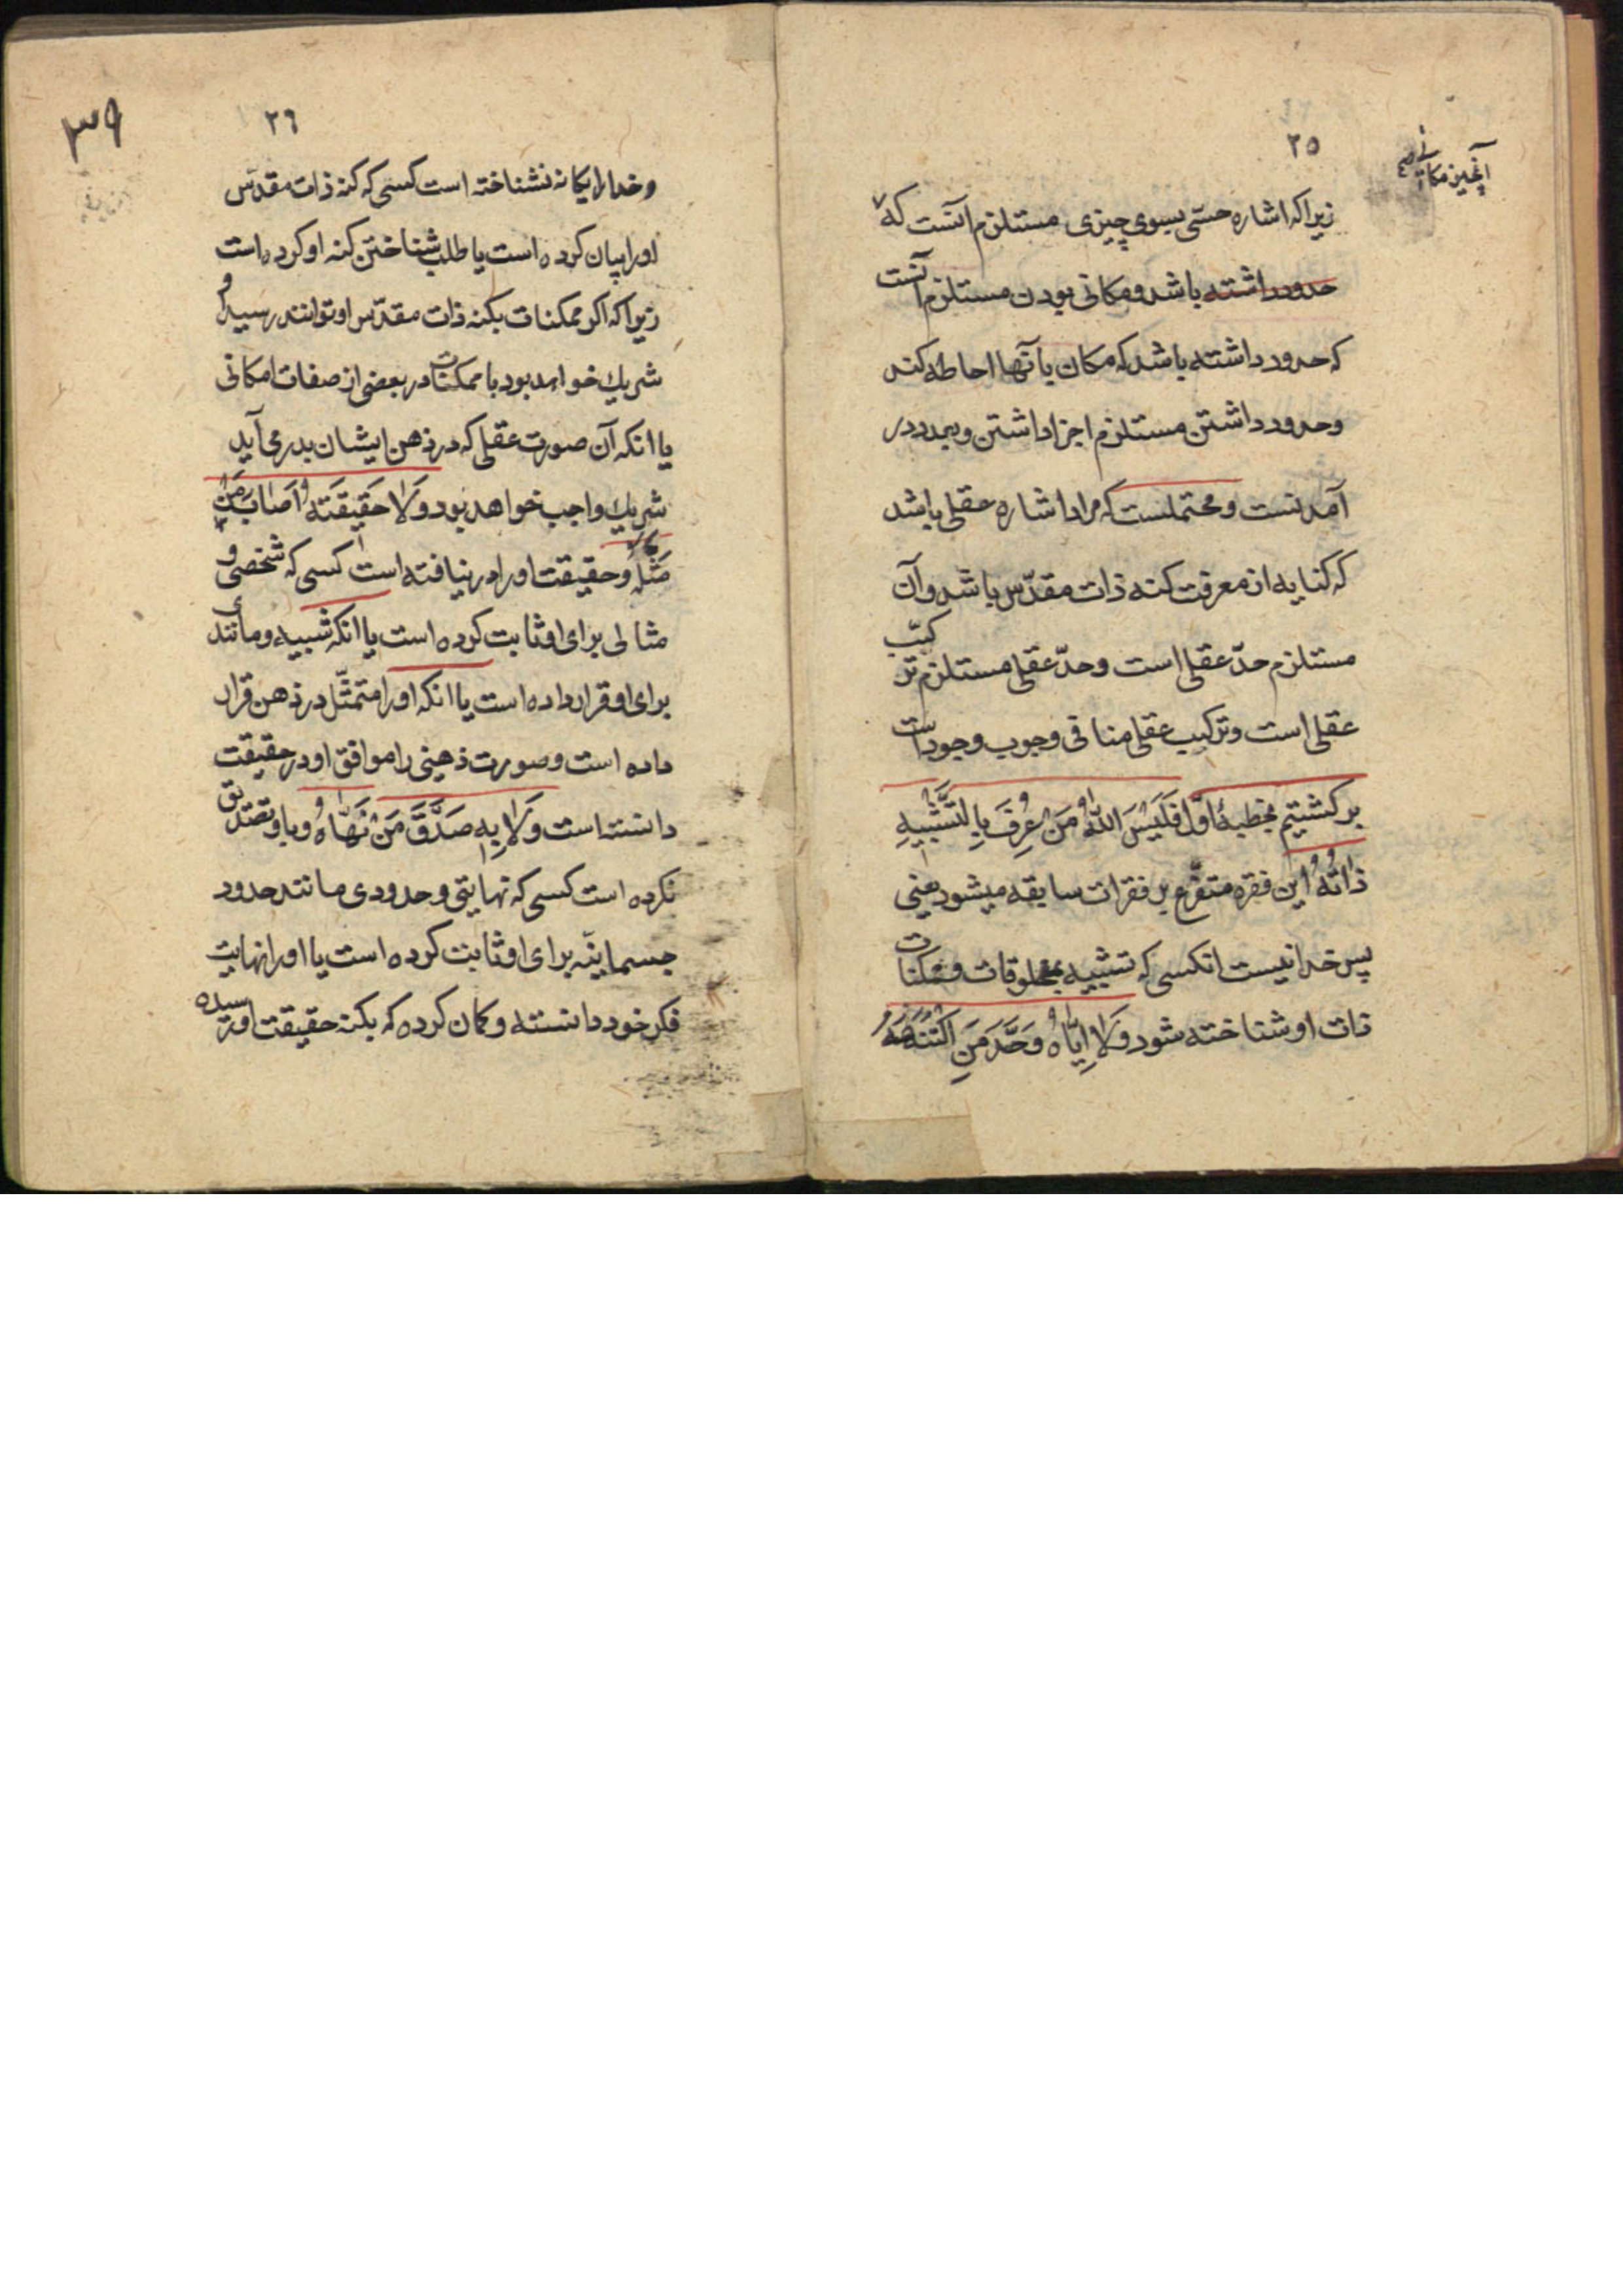 ۲۵
آنچیز مکانی صح
زیراکه اشاره حسّی بسوی چیزی مستلزم آنست که
حدود داشته باشد و مکانی بودن مستلزم آنست
که حدود داشته باشد که مکان بآنها احاطه کند
و حدود داشتن مستلزم اجزا داشتن و بمدد در
آمدنست و محتملست که مراد اشاره عقلی باشد
که کنایه از معرفت کنه ذات مقدّس باشد و آن
مستلزم حدّ عقلی است و حدّ عقلی مستلزم ترکیب
عقلی است و ترکیب عقلی منافی وجوب وجود است
برکشتیم بخطبهٔ اوّل فَلَیْسَ اللّٰهُ مَنْ عُرِفَ بِالتَّشْبِیهِ
ذاتُهُ این فقره متفرّع بر فقرات سابقه میشود یعنی
پس خدا نیست انکسی که تشبیه بمخلوقات و ممکنات
ذات او شناخته شود وَلا اِیّاهُ وَحَّدَ مَنِ اکْتَنَهَهُ
۲۶
۳۹
و خدا را یکانه نشناخته است کسی که کنه ذات مقدّس
او را بیان کرده است یا طلب شناختن کنه او کرده است
زیراکه اکر ممکنات بکنه ذات مقدّس او توانند رسید او
شریك خواهد بود با ممکنات در بعضی از صفات امکانی
یا انکه آن صورت عقلی که در ذهن ایشان بدر می آید
شریك واجب خواهد بود وَلا حَقیقَتَهُ اَصابَ مَنْ
مَثَّلَهُ و حقیقت او را در نیافته است کسی که شخصی و
مثالی برای او ثابت کرده است یا انکه شبیه و مانندی
برای او قرار داده است یا انکه او را متمثّل در ذهن قرار
داده است و صورت ذهنی را موافق او در حقیقت
دانسته است وَلا بِهِ صَدَّقَ مَنْ نَهّاهُ و باو تصدیق
نکرده است کسی که نهایتی و حدودی مانند حدود
جسمانیّه برای او ثابت کرده است یا او را نهایت
فکر خود دانسته و کمان کرده که بکنه حقیقت او رسیده